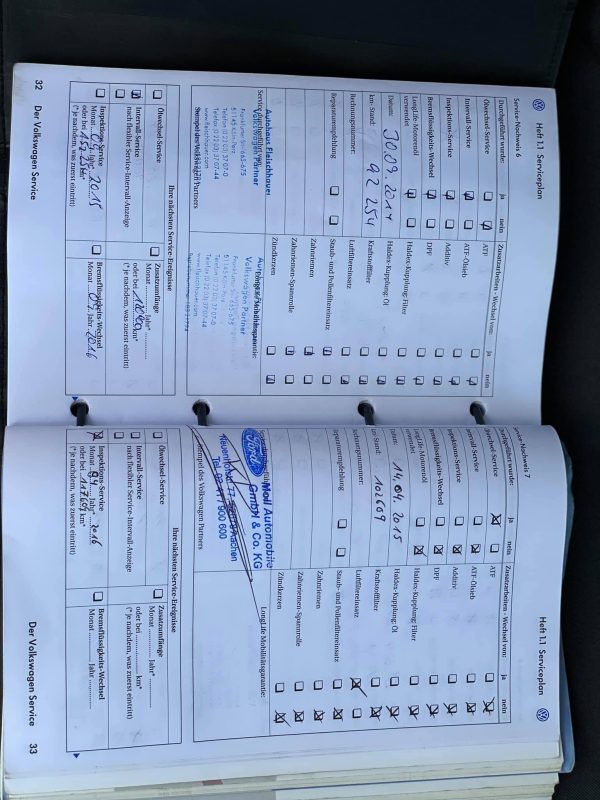 Heft 1.1 Serviceplan
Service-Nachweis 6
Durchgeführt wurde: ja nein
Ölwechsel-Service
Intervall-Service
Inspektions-Service
Bremsflüssigkeits-Wechsel
LongLife-Motorenöl
verwendet
Datum: 30.09.2014
km-Stand: 92 254
Rechnungsnummer:
Reparaturempfehlung
Autohaus Fleischhauer
Volkswagen Partner
Frankfurter Str.
51145 Köln/Porz
www.fleischhauer.com
Stempel des Volkswagen Partners
Zusatzarbeiten - Wechsel von: ja nein
ATF
ATF-Ölsieb
Additiv
DPF
Haldex-Kupplung: Filter
Haldex-Kupplung: Öl
Kraftstofffilter
Luftfiltereinsatz
Staub- und Pollenfiltereinsatz
Zahnriemen
Zahnriemen-Spannrolle
Zündkerzen
Volkswagen Partner
Ihre nächsten Service-Ereignisse
Ölwechsel-Service
Intervall-Service
nach flexibler Service-Intervall-Anzeige
Inspektions-Service
Monat 09 Jahr 2015
oder bei km*
(* je nachdem, was zuerst eintritt)
Zusatzumfänge
Monat Jahr*
oder bei km*
(* je nachdem, was zuerst eintritt)
Bremsflüssigkeits-Wechsel
Monat 09 Jahr 2016
32 Der Volkswagen Service
Heft 1.1 Serviceplan
Service-Nachweis 7
Durchgeführt wurde: ja nein
Ölwechsel-Service
Intervall-Service
Inspektions-Service
Bremsflüssigkeits-Wechsel
LongLife-Motorenöl
verwendet
Datum: 14.04.2015
km-Stand: 102669
Rechnungsnummer:
Reparaturempfehlung
Ford
Moll Automobile
GmbH & Co. KG
Aachen
Tel. 02 41 / 900 600
Stempel des Volkswagen Partners
Zusatzarbeiten - Wechsel von: ja nein
ATF
ATF-Ölsieb
Additiv
DPF
Haldex-Kupplung: Filter
Haldex-Kupplung: Öl
Kraftstofffilter
Luftfiltereinsatz
Staub- und Pollenfiltereinsatz
Zahnriemen
Zahnriemen-Spannrolle
Zündkerzen
LongLife Mobilitätsgarantie:
Ihre nächsten Service-Ereignisse
Ölwechsel-Service
Intervall-Service
nach flexibler Service-Intervall-Anzeige
Inspektions-Service
Monat 04 Jahr 2016
oder bei 117669 km*
(* je nachdem, was zuerst eintritt)
Zusatzumfänge
Monat Jahr*
oder bei km*
(* je nachdem, was zuerst eintritt)
Bremsflüssigkeits-Wechsel
Monat Jahr
Der Volkswagen Service 33